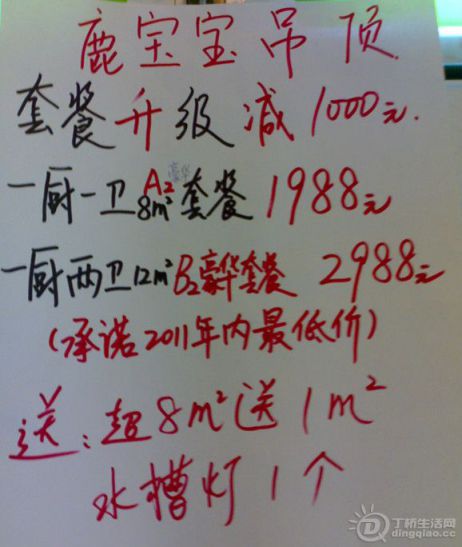 鹿宝宝吊顶
套餐升级减1000元.
一厨一卫8m²A2豪华套餐 1988元
一厨两卫12m²B2豪华套餐 2988元
(承诺2011年内最低价)
送:超8m²送1m²
水槽灯1个
丁桥生活网
dingqiao.cc